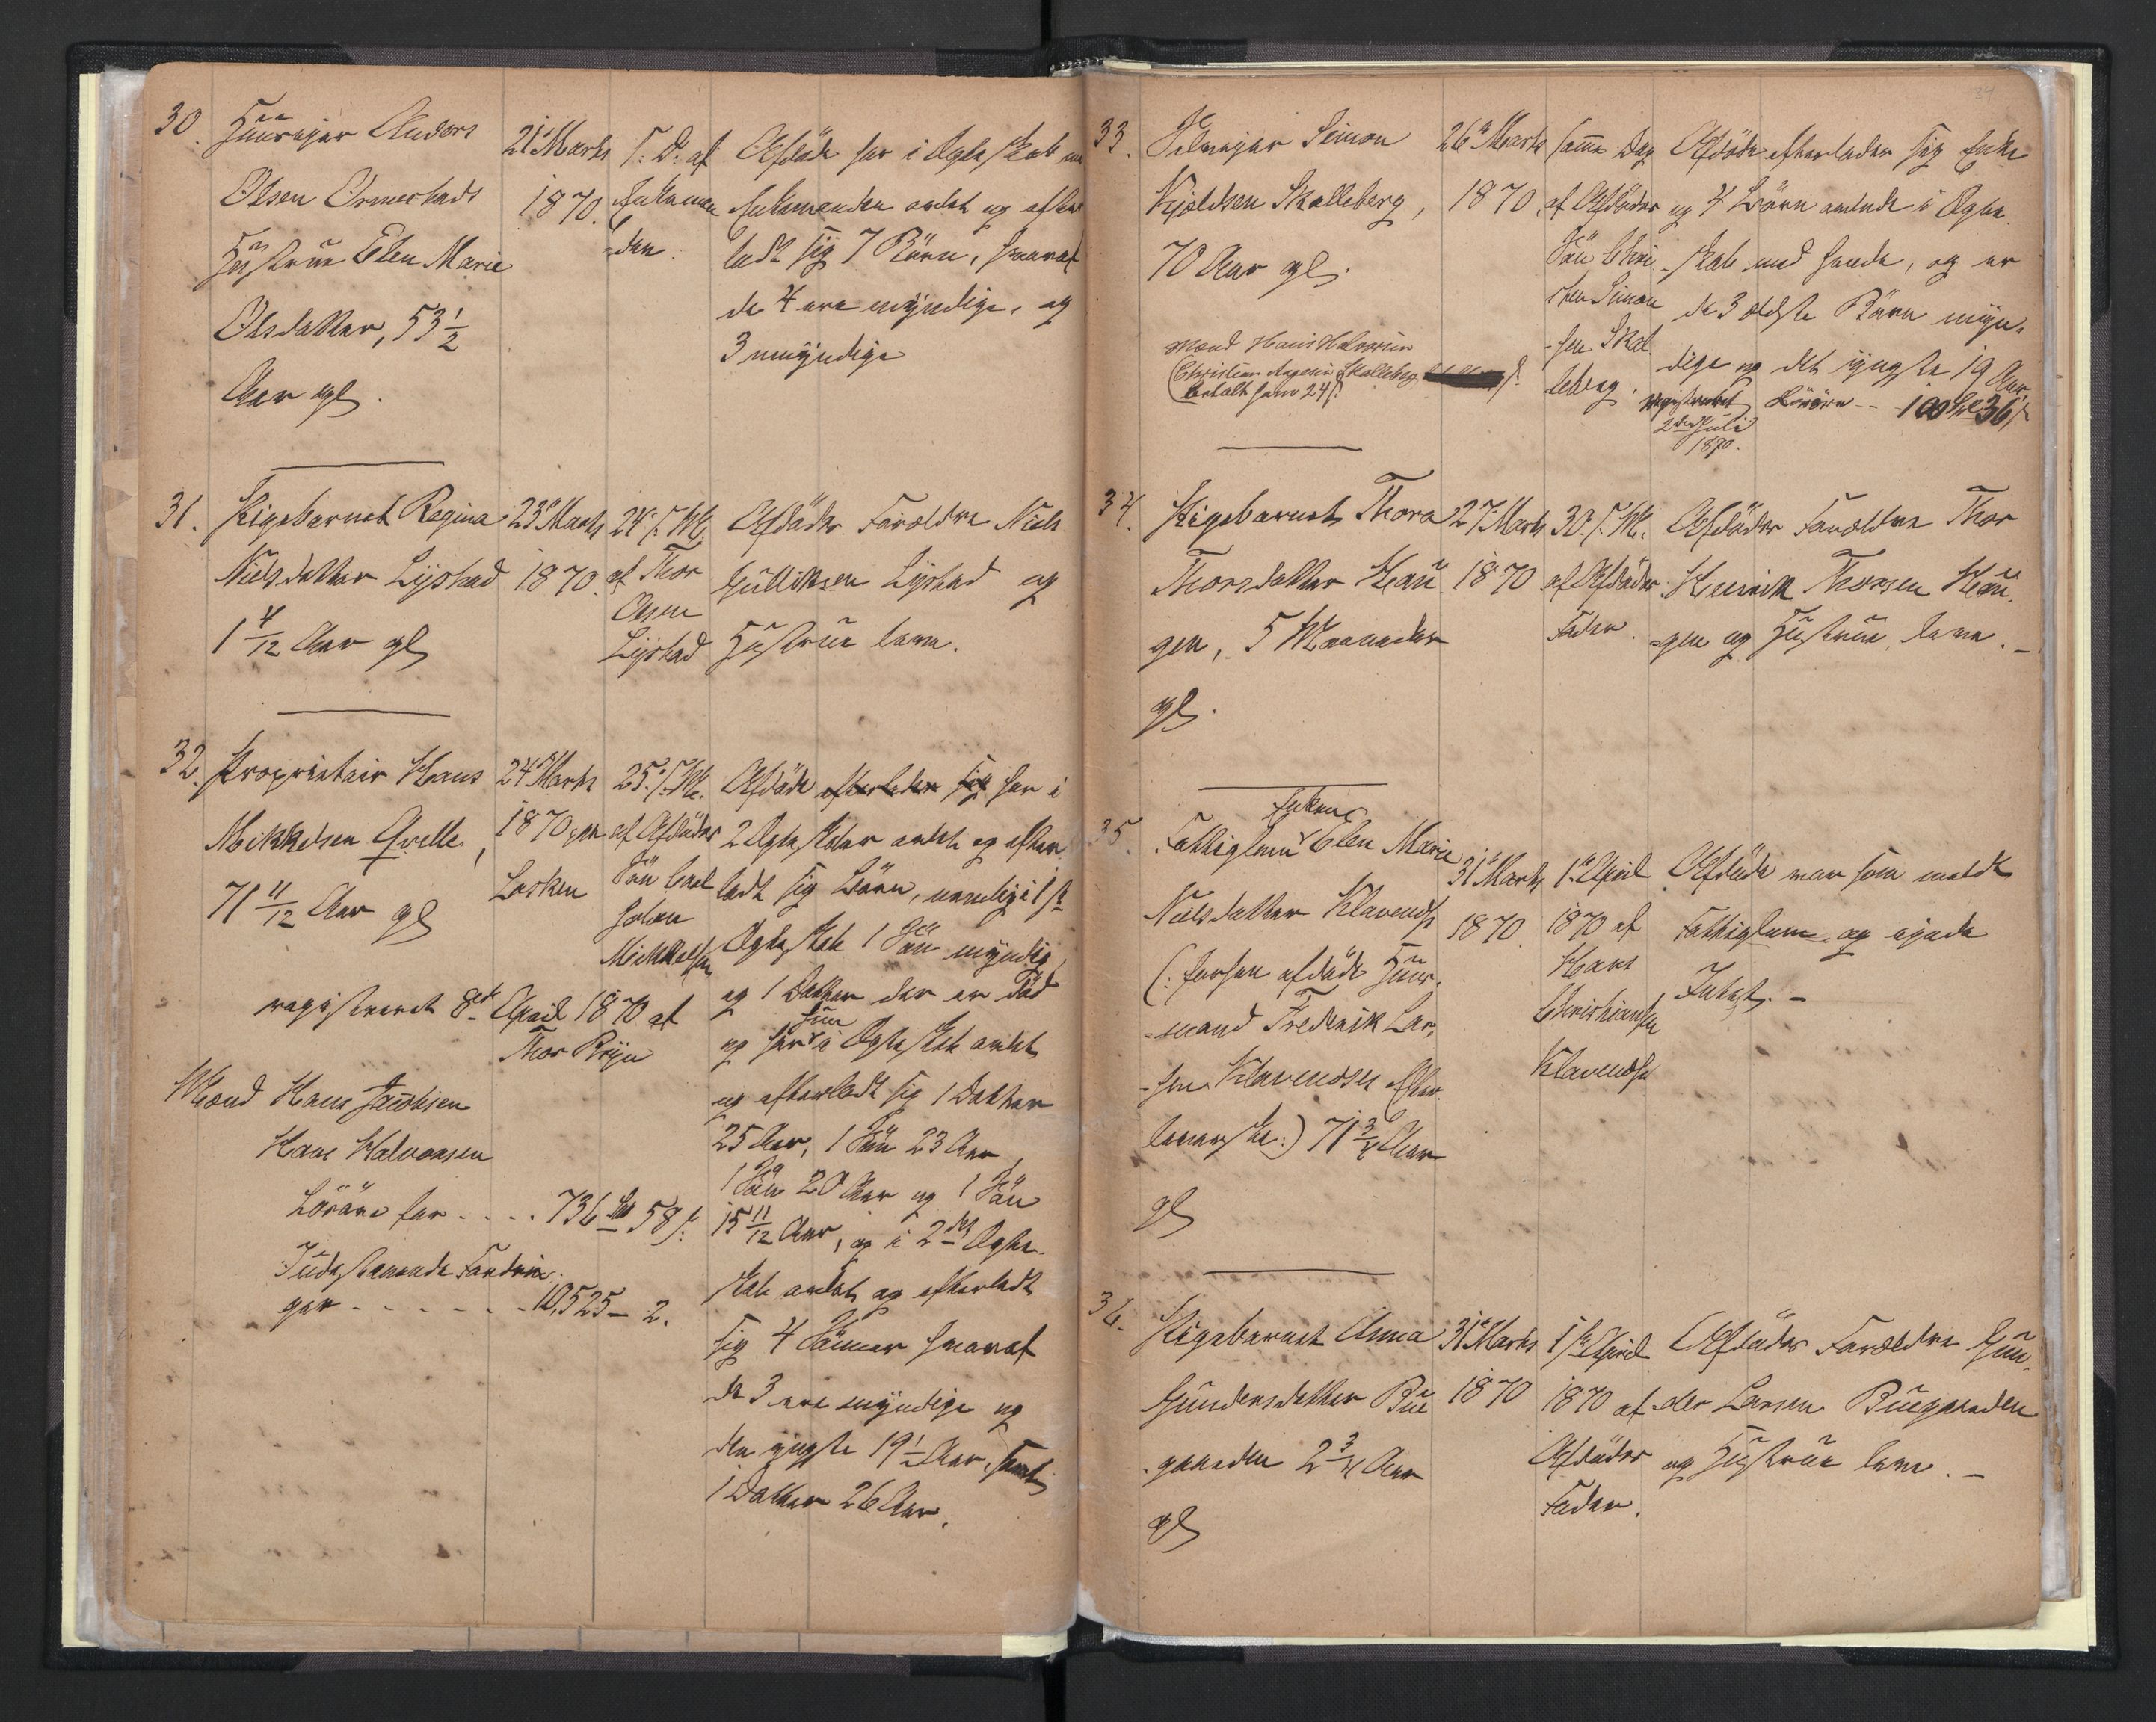 30. Huuseier Anders
Olsen Ormestads
Hustrue Elen Marie
Olsdatter, 53 1/2
Aar gl.
21de Marts
1870.
s. D. af
Enkeman
=den.
Afdøde har i Ægteskab med
Enkemanden avlet og efter
ladt sig 7 Børn, hvoraf
de 4 ere myndige, og
3 umyndige
31. Pigebarnet Regina
Nielsdatter Lystad
1 4/12 Aar gl
23de Marts
1870.
24de s. M.
af Thor
Olsen
Lystad
Afdødes Forældre Niels
Gulliksen Lystad og
Hustrue leve.
32. Proprietair Hans
Mikkelsen Qvelle,
71 11/12 Aar gl
24de Marts
1870 paa
Lasken
25de s. M.
af Afdødes
Søn Carl
Johan
Mikkelsen
Afdøde efterlader sig har i
2 Ægteskaber avlet og efter
ladt sig Børn, nemlig i 1ste
Ægteskab 1 Søn myndig,
og 1 Datter der er død
og har i Ægteskab avlet
hun
og efterladt sig 1 Datter
25 Aar, 1 Søn 23 Aar,
1 Søn 20 Aar og 1 Søn
15 11/12 Aar, og i 2det Ægte-
skab avlet og efterladt
sig 4 Sønner hvoraf
de 3 ere myndige og
den yngste 19 1/2 Aar, samt
1 Datter 26 Aar.
registreret 8de April 1870 af
Thor Bryn
Mænd Hans Jacobsen
Hans Halvorsen
Løsøre for .... 736 Spd 58 s:
Udestaaende Fordrin-
ger - - - - - - 10,525 - 2.
33. Selveier Simon
Kjeldsen Skalleberg,
70 Aar gl.
Mænd Hans Halvorsen
Christian Aagesen Skalleberg
betalt ham 24 s.
26de Marts
1870.
samme Dag
af Afdødes
Søn Chri-
sten Simon
-sen Skal
leberg.
Afdøde efterlader sig Enke
og 4 Børn avlede i Ægte
skab med hende, og er
de 3 ældste Børn myn-
dige og det yngste 19 Aar.
registreret Løsøre -- 100 Spd 36 s
2den Juli
1870.
34. Pigebarnet Thora
Thorsdatter Hau
gen, 5 Maaneder
gl.
27de Marts
1870
30. s. M.
af Afdødes
Fader.
Afdødes Forældre Thor
Henrik Thorsen Hau-
=gen og Hustrue leve. -
35. Fattiglem Elen Marie
Enken
Nielsdatter Klavendss
(: forhen afdøde Huus-
=mand Fredrik Lar-
-sen Klavendss efter
leverske:) 71 3/4 Aar
gl
31de Marts
1870.
1ste April
1870 af
Hans
Christiansen
Klavendss
Afdøde var som meldt
Fattiglem og eiede
Intet. -
36. Pigebarnet Anna
Gundersdatter Bue
-gaarden 2 3/4 Aar
gl
31de Marts
1870
1ste April
1870 af
Afdødes
Fader.
Afdødes Forældre Gun-
=der Larsen Buegaarden
og Hustrue leve. -